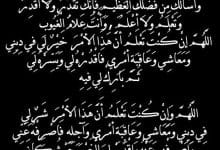 وأسألك من فضلك العظيم فإنك تقدر ولا أقدر
وتعلم ولا أعلم ، وأنت علام الغيوب
اللهم إن كنت تعلم أن هذا الأمر خير لي في ديني
ومعاشي وعاقبة أمري فاقدره لي ويسره لي
ثم بارك لي فيه
اللهم وإن كنت تعلم أن هذا الأمر شر لي
في ديني ومعاشي وعاقبة أمري وآجله فاصرفه عني